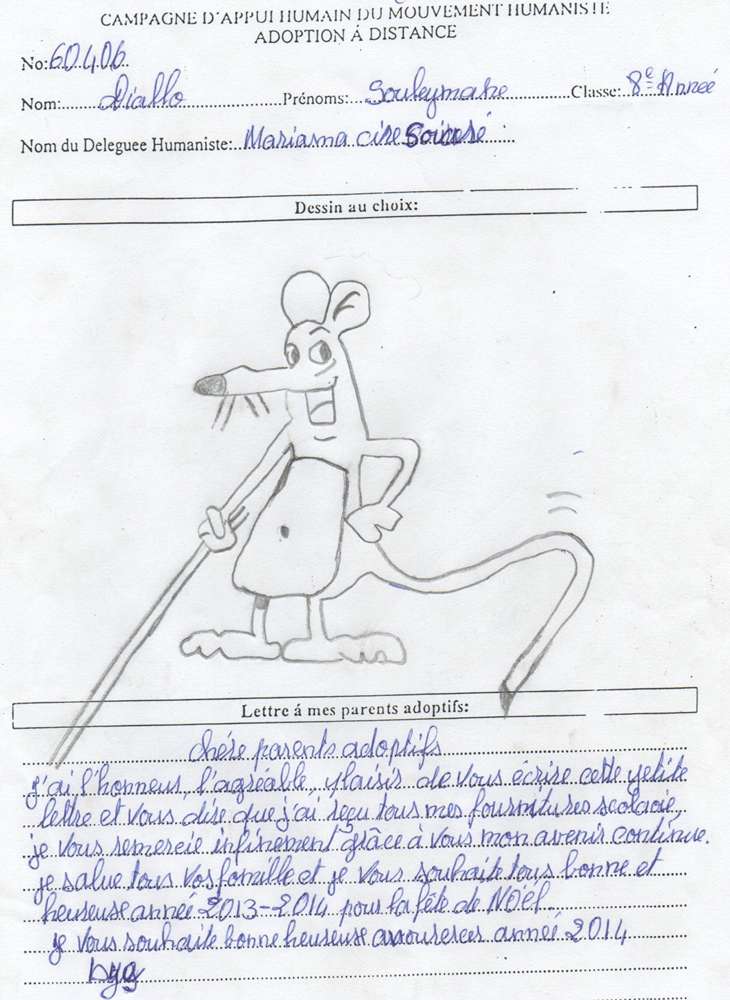 CAMPAGNE D'APPUI HUMAIN DU MOUVEMENT HUMANISTE
ADOPTION Á DISTANCE
No: 60406
Nom: Diallo Prénoms: Souleymane Classe: 8e Année
Nom du Deleguee Humaniste: Mariama cire
Dessin au choix:
Lettre á mes parents adoptifs:
chére parents adoptifs
j'ai l'honneur, l'agréable, plaisir de vous écrire cette petite
lettre et vous dire que j'ai reçu tous mes fournitures scolaoie,
je vous remercie infiniment grâce à vous mon avenir continue.
je salue tous vos famille et je vous souhaite tous bonne et
heureuse année 2013-2014 pour la fête de NOËL
je vous souhaite bonne heureuse année 2014